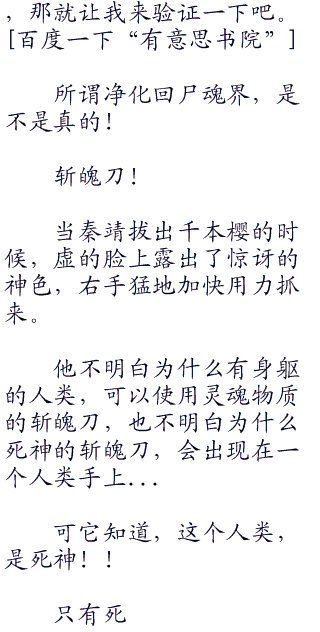 ，那就让我来验证一下吧。
[百度一下“有意思书院”]
所谓净化回尸魂界，是
不是真的！
斩魄刀！
当秦靖拔出千本樱的时
候，虚的脸上露出了惊讶的
神色，右手猛地加快用力抓
来。
他不明白为什么有身躯
的人类，可以使用灵魂物质
的斩魄刀，也不明白为什么
死神的斩魄刀，会出现在一
个人类手上...
可它知道，这个人类，
是死神！！
只有死